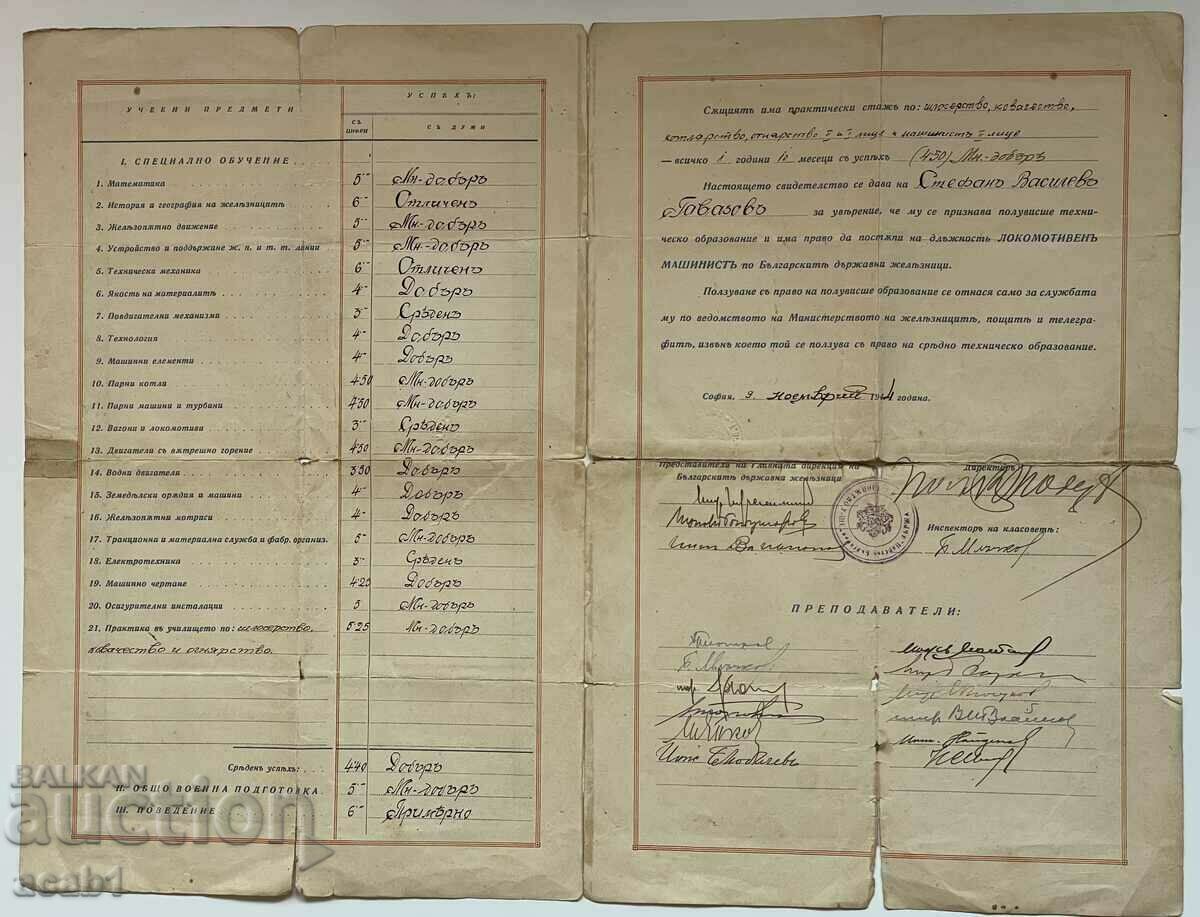 УЧЕБНИ ПРЕДМЕТИ
УСПѢХЪ:
СЪ ЦИФРИ
СЪ ДУМИ
I. СПЕЦИАЛНО ОБУЧЕНИЕ
1. Математика 5 Мн. добъръ
2. История и география на желѣзницитѣ 6 Отличенъ
3. Желѣзопѫтно движение 5 Мн. добъръ
4. Устройство и поддържане ж. п. и т. т. линии 5 Мн. добъръ
5. Техническа механика 6 Отличенъ
6. Якость на материалитѣ 4 Добъръ
7. Повдигателни механизми 3 Срѣденъ
8. Технология 4 Добъръ
9. Машинни елементи 4 Добъръ
10. Парни котли 4·50 Мн. добъръ
11. Парни машини и турбини 4·50 Мн. добъръ
12. Вагони и локомотиви 3 Срѣденъ
13. Двигатели съ вѫтрешно горение 4·50 Мн. добъръ
14. Водни двигатели 3·50 Добъръ
15. Земедѣлски орѫдия и машини 4 Добъръ
16. Желѣзопѫтни мотриси 4 Добъръ
17. Тракционна и материална служба и фабр. организ. 5 Мн. добъръ
18. Електротехника 3 Срѣденъ
19. Машинно чертане 4·25 Добъръ
20. Осигурителни инсталации 5 Мн. добъръ
21. Практика въ училището по: шлосерство, 5·25 Мн. добъръ
ковачество и огнярство.
Срѣденъ успѣхъ: 4·40 Добъръ
II. ОБЩО ВОЕННА ПОДГОТОВКА 5 Мн. добъръ
III. ПОВЕДЕНИЕ 6 Примѣрно
BALKAN
auction
acab1
Сѫщиятъ има практически стажъ по: шлосерство, ковачество,
котларство, огнярство лице и машинистъ I лице
— всичко 1 години 10 месеци съ успѣхъ (4·50) Мн. добъръ
Настоящето свидетелство се дава на Стефанъ Василевъ
Гавазовъ за увѣрение, че му се признава полувисше техни-
ческо образование и има право да постѫпи на длъжность ЛОКОМОТИВЕНЪ
МАШИНИСТЪ по Българскитѣ държавни желѣзници.
Ползуване съ право на полувисше образование се отнася само за службата
му по ведомството на Министерството на желѣзницитѣ, пощитѣ и телегра-
фитѣ, извънъ което той се ползува съ право на срѣдно техническо образование.
София, 9 ноемврий година.
Представители на Главната дирекция на
Българскитѣ държавни желѣзници
Директоръ:
Инспекторъ на класоветѣ:
Б. Млѣчков
ПРЕПОДАВАТЕЛИ:
Б. Млѣчков